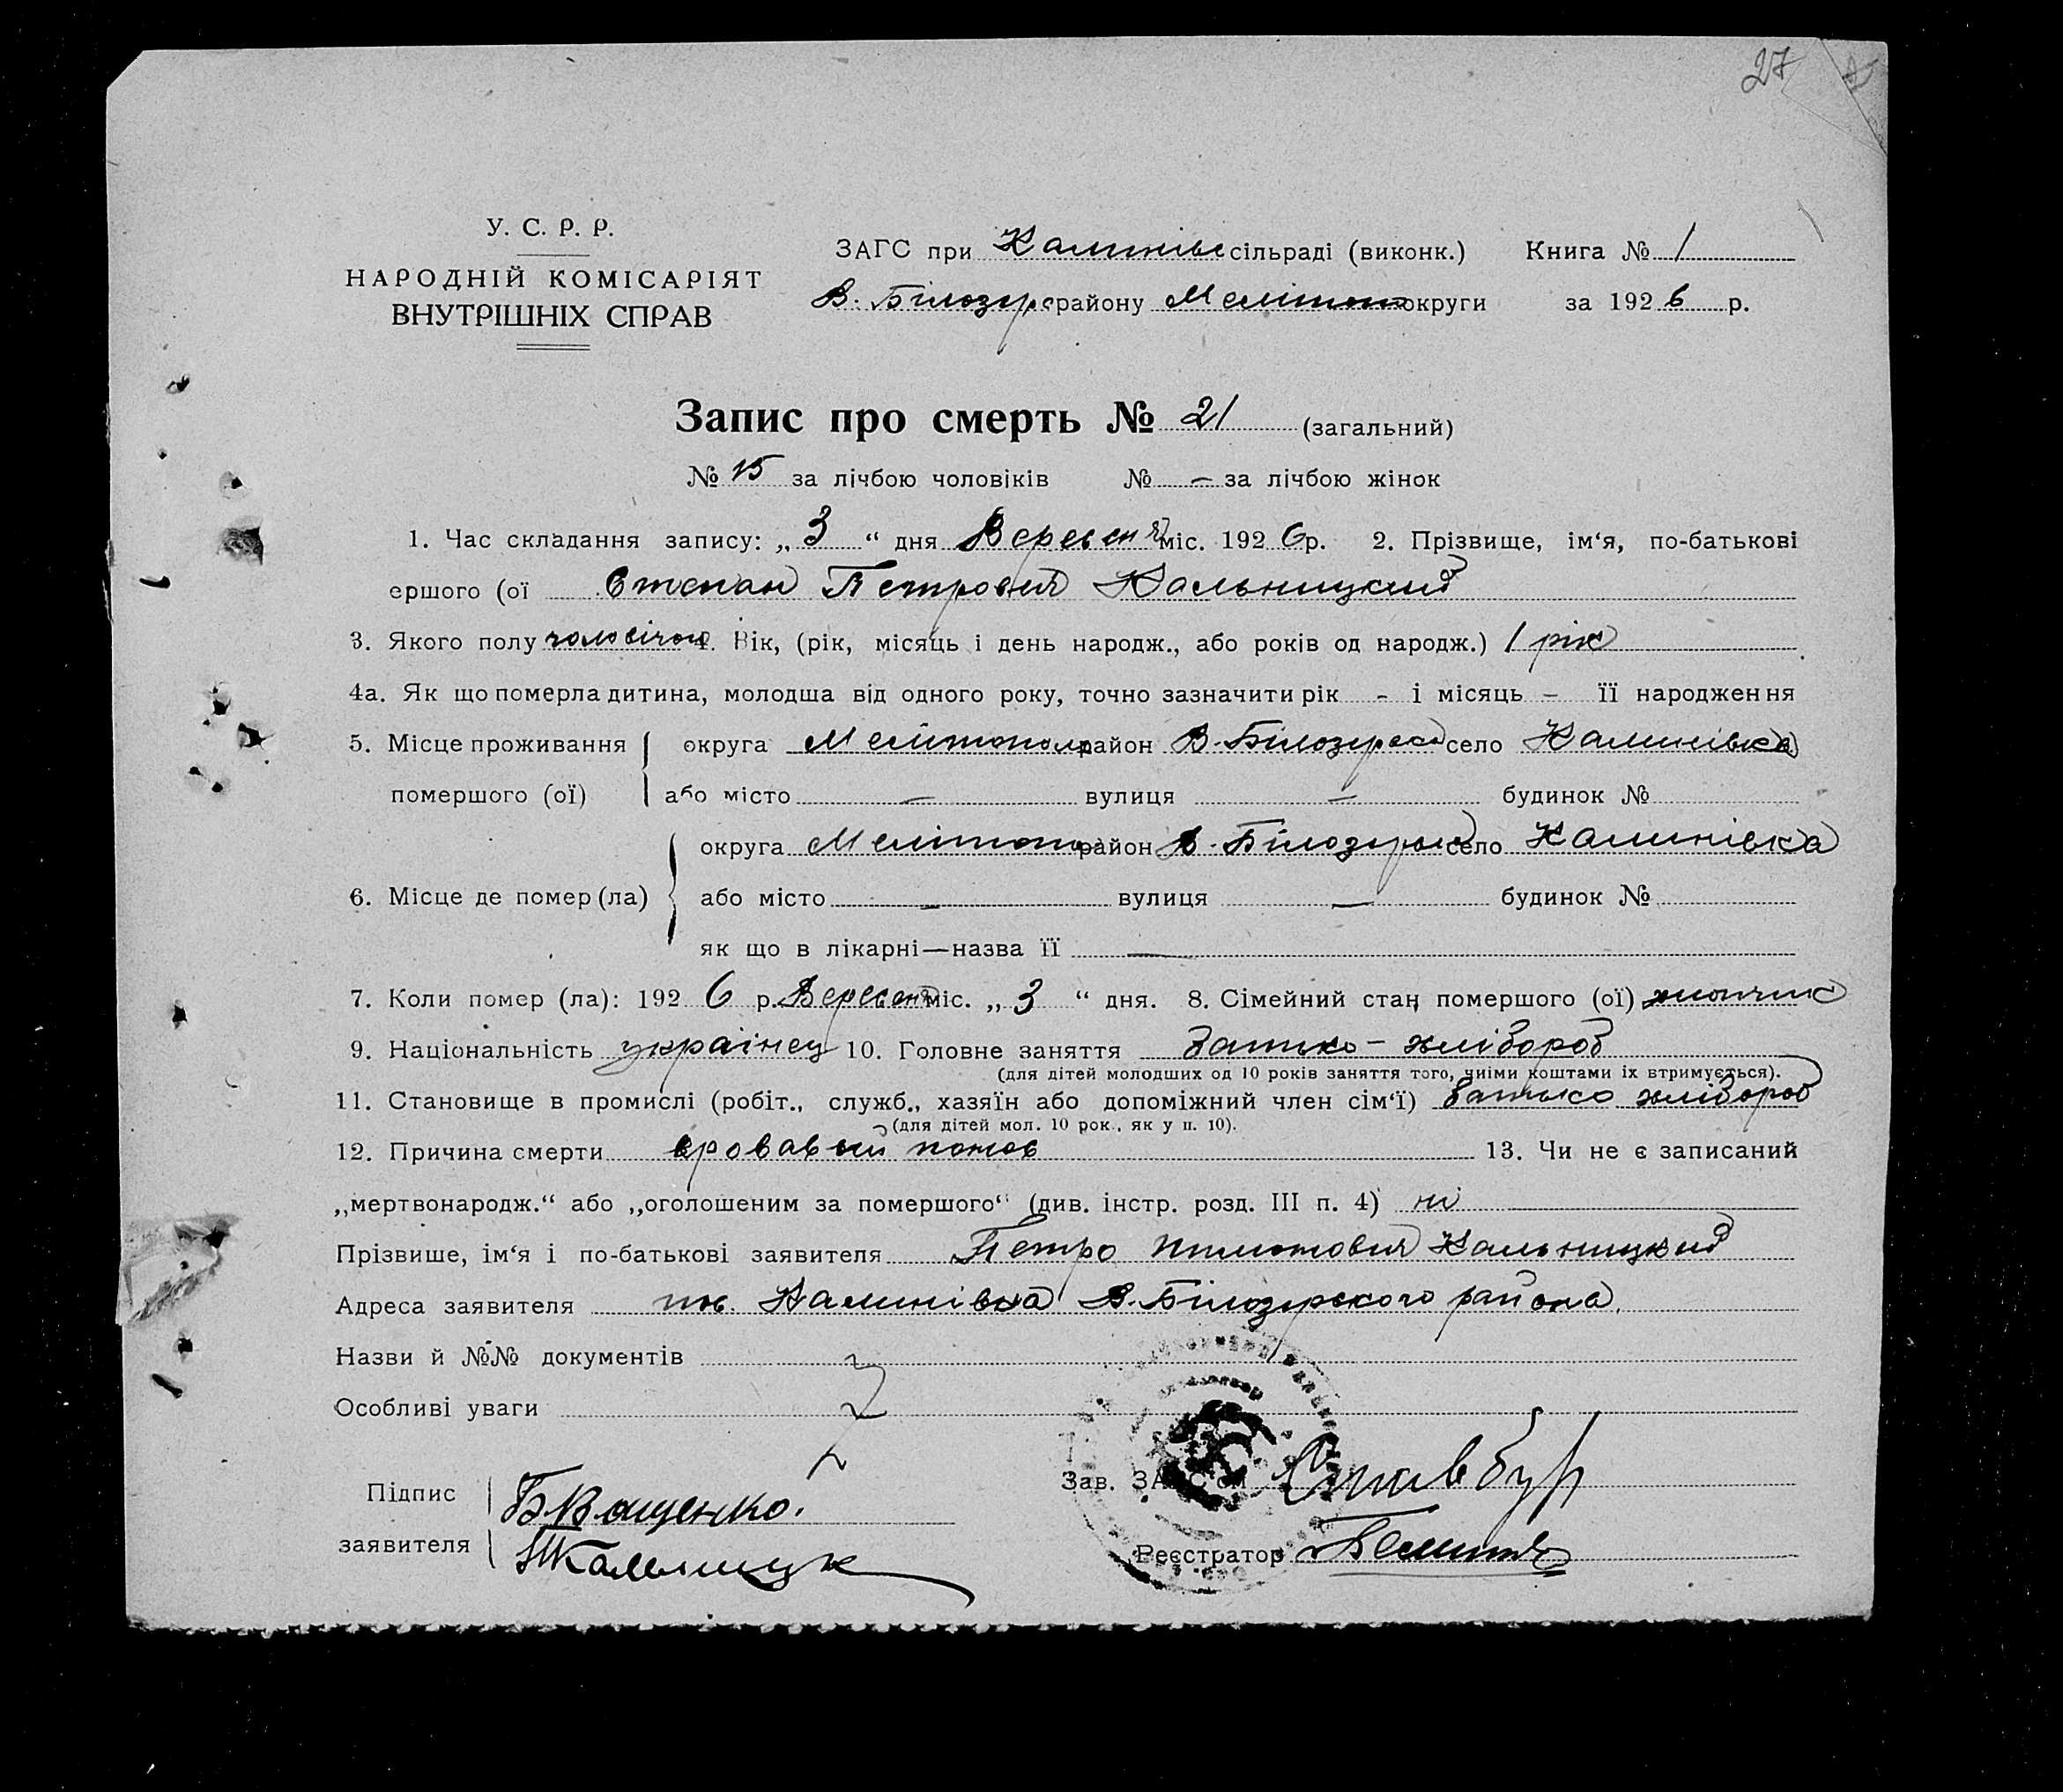 27
У. С. Р. Р.
НАРОДНІЙ КОМІСАРІЯТ
ВНУТРІШНІХ СПРАВ
ЗАГС при Калинівс сільраді (виконк.) Книга № 1
В. Білозерс району Мелітоп округи за 1926 р.
Запис про смерть № 21 (загальний)
№ 15 за лічбою чоловіків № – за лічбою жінок
1. Час складання запису: „ 3 “ дня Вересня міс. 1926 р. 2. Прізвище, ім‘я, по-батькові
ершого (ої Степан Петрович Кальницкий
3. Якого полу чоловічою 4. Вік, (рік, місяць і день народж., або років од народж.) 1 рік
4а. Як що померла дитина, молодша від одного року, точно зазначити рік - і місяць – її народження
5. Місце проживання округа Мелітополь район В-Білозерсс село Калинівка
помершого (ої) або місто – вулиця – будинок №
округа Мелітоп район В-Білозерс село Калинівка
6. Місце де помер (ла) або місто – вулиця – будинок №
як що в лікарні—назва її —
7. Коли помер (ла): 1926 р. Вересня міс. „ 3 “ дня. 8. Сімейний стан помершого (ої) хлопчик
9. Національність українец 10. Головне заняття Батько – хлібороб
(для дітей молодших од 10 років заняття того, чиїми коштами їх втримується).
11. Становище в промислі (робіт., служб., хазяїн або допоміжний член сім‘ї) батько хлібороб
(для дітей мол. 10 рок., як у п. 10).
12. Причина смерти кровавый понос 13. Чи не є записаний
„мертвонародж.“ або „оголошеним за помершого“ (див. інстр. розд. III п. 4) ні
Прізвише, ім‘я і по-батькові заявителя Петро Кальницкий
Адреса заявителя Калинівка В.-Білозерского района.
Назви й №№ документів
Особливі уваги
Підпис Б. Ващенко.
заявителя Кальницк
Зав. ЗАГС'ом
Реєстратор